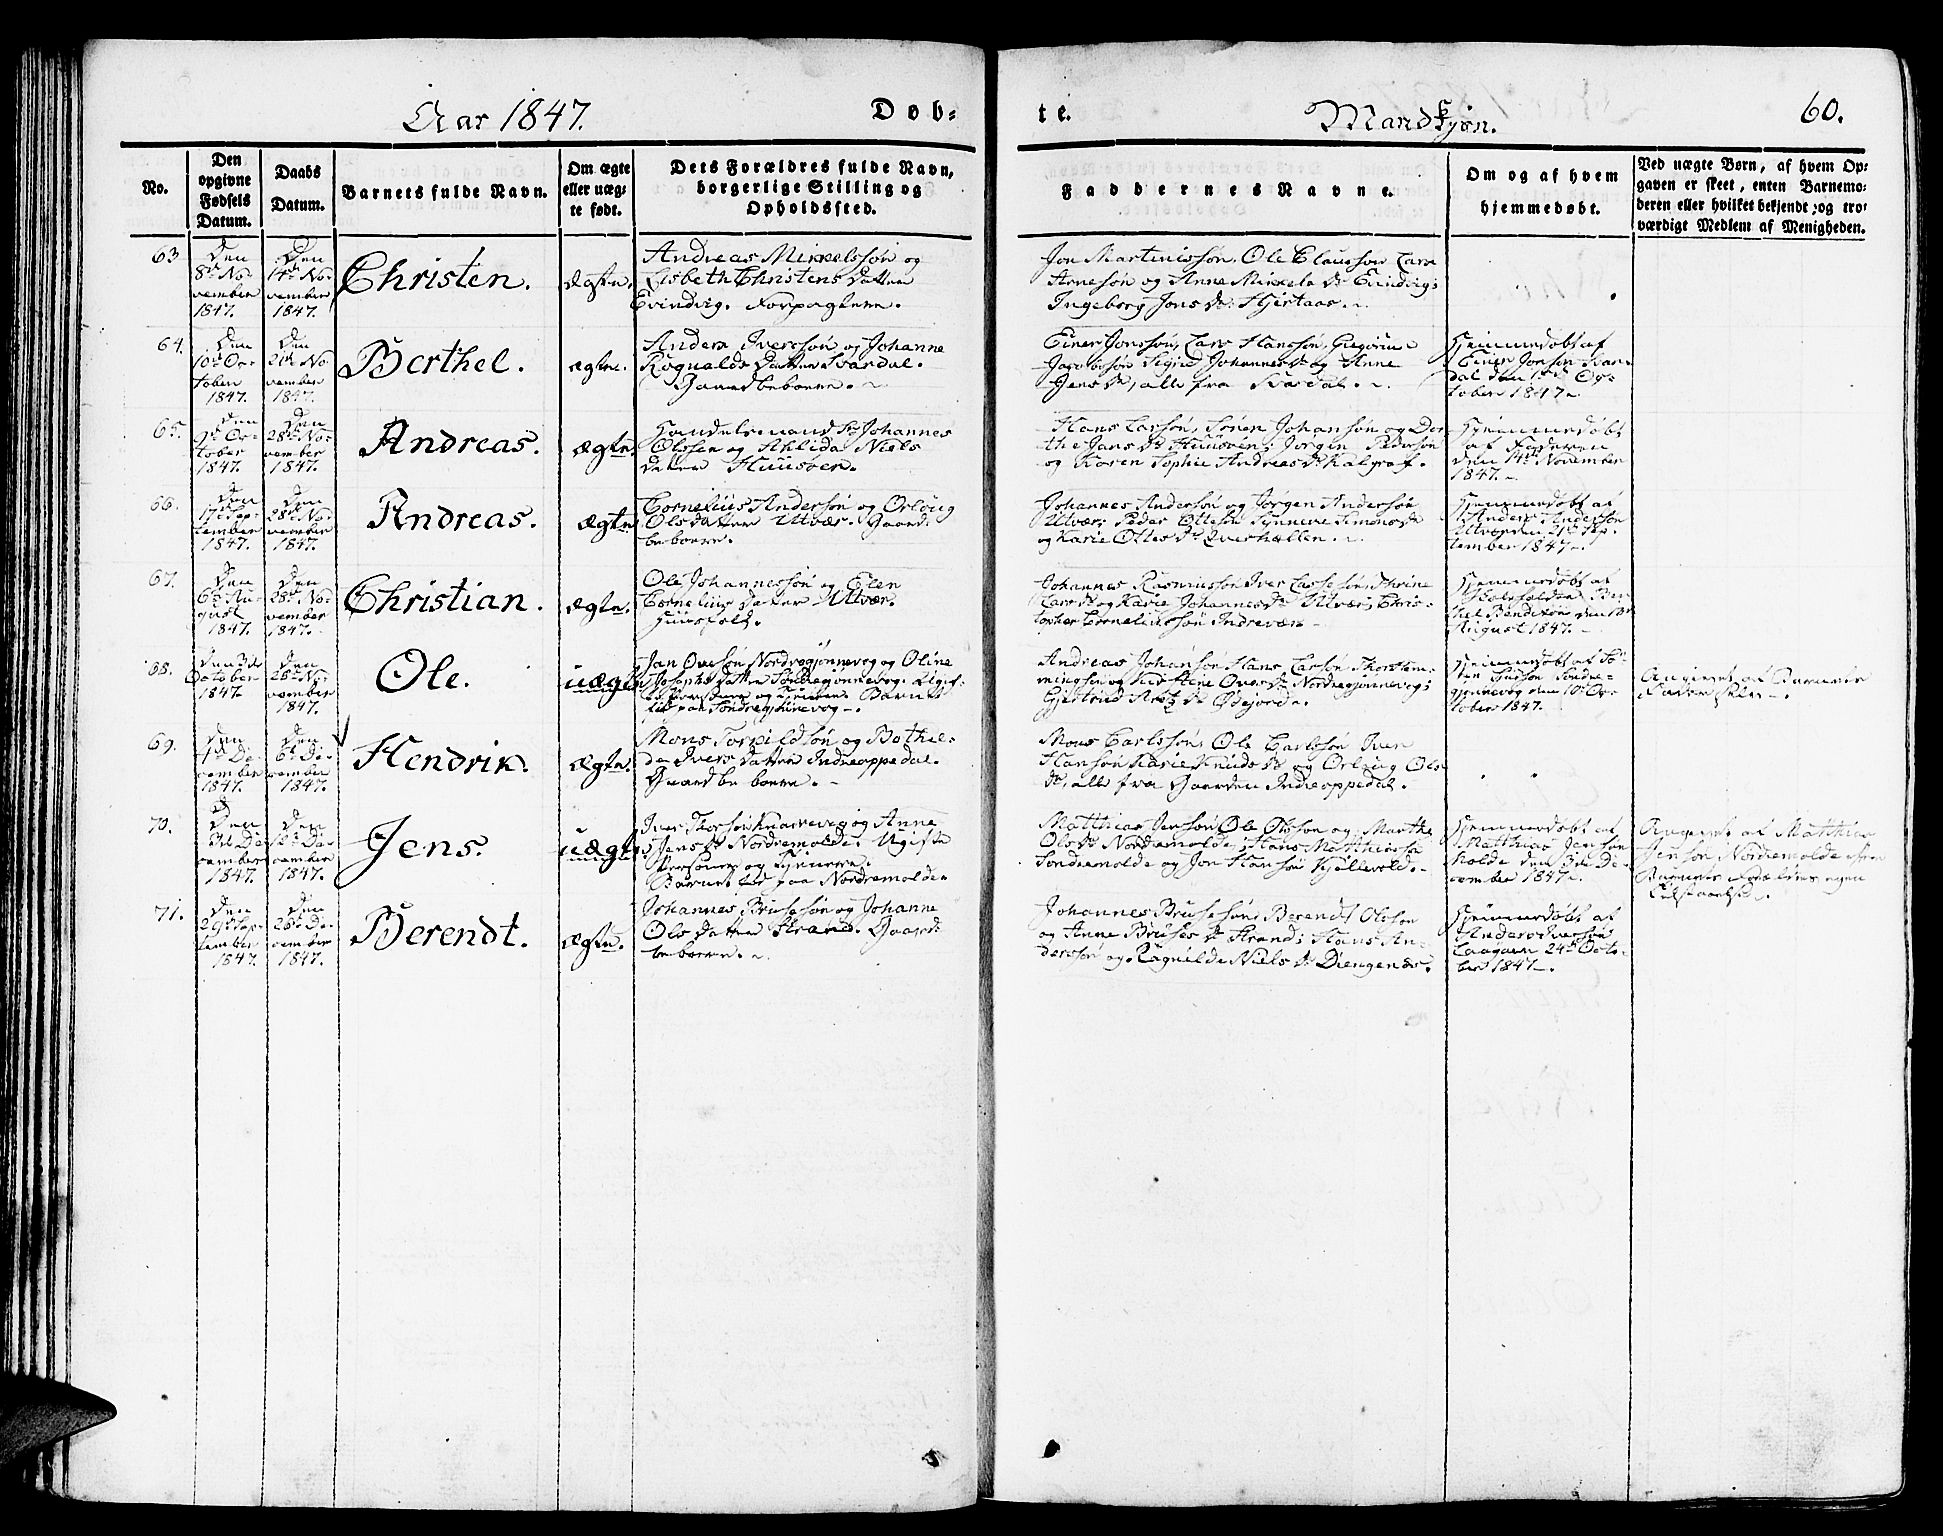 Aar 1847.
Døb-
te.
Mandkjøn.
60.
No.
Den opgivne Fødsels Datum.
Daabs Datum.
Barnets fulde Navn.
Om ægte eller uægte født.
Dets Forældres fulde Navn, borgerlige Stilling og Opholdssted.
Faddernes Navne.
Om og af hvem hjemmedøbt.
Ved uægte Børn, af hvem Opgaven er skeet, enten Barnemoderen eller hvilket bekjendt og troværdigt Medlem af Menigheden.
63
Den
8de No-
vember
1847.
Den
14de No-
vember
1847.
Christen.
Ægte.
Andreas Mikkelssøn og
Lisbeth Christens Datter
Evindvig. Forpagtere.
Jon Martinussøn, Ole Claussøn Lars
Arnesøn og Anne Mikkels Dr Evindvig;
Ingeborg Jons Dr Hjertaas.
64.
Den
10de Oc-
tober
1847.
Den
21de No-
vember
1847.
Berthel.
ægte.
Anders Iverssøn og Johanne
Rognalds Datter Svardal.
Gaardbeboere.
Einer Jonssøn, Lars Hanssøn,
Jacobsøn Sigrid Johannes Dr og Anne
Jens Dr, alle fra Svardal.
Hjemmedøbt af
Einer Jonsøn Svar-
dal den Oc-
tober 1847.
65.
Den
9de Oc-
tober
1847.
Den
28de No-
vember
1847.
Andreas.
Ægte.
Handelsmand Hr Johannes
Olssen og Ahlida Niels
Datter Huusøen.
Hans Larsøn, Søren Johansøn og Dor-
the Jans Dr Huusøen; Jørgen Pedersøn
og Karen Sophie Andreas Dr Kalgraf.
Hjemmedøbt
af Faderen
den 14de November
1847.
66.
Den
17de Sep-
tember
1847.
Den
28de No-
vember
1847.
Andreas.
Ægte
Cornelius Andersøn og Orloug
Ols Datter Utvær. Gaard-
beboere.
Johannes Andersøn og Jørgen Andersøn
Utvær; Peder Ottesøn Synneve Simons Dr
og Karie Ottes Dr Qverhellen.
Hjemmedøbt af
Anders Andersøn
Utvær den 21de Sep-
tember 1847.
67.
Den
6te Au-
gust
1847.
Den
28de No-
vember
1847.
Christian.
Ægte.
Ole Johannessøn og Elen
Cornelius Datter Utvær.
Huusfolk.
Johannes Rasmussøn Iver Lassesøn, Thrine
Lars Dr og Karie Johannes Dr Utvær, Chris-
topher Corneliussøn Indrevær
Hjemmedøbt af
Ber-
thel Bendixøn den
August 1847.
68.
Den 3de
October
1847
Den
28de No-
vember
1847.
Ole.
uægte
Jan Ovesøn Nordregjønnevog og Oline
Josephs Datter Søndregjønnevog. Ugif-
te Personer og Tjenere. Barnet
født paa Søndregjønnevog.
Andreas Johansøn Hans Larsøn Thorstein
og Kirstene Oves Dr Nordregjønnevog;
Gjertrud Dr Ødejorde.
Hjemmedøbt af
Søndre-
gjønnevog den 10de Oc-
tober 1847.
Angivet af Barnets
Fader
69.
Den
1ste De-
cember
1847.
Den
6te De-
cember
1847.
Hendrik.
Ægte.
Mons Torkildsøn og Bothil-
da Ivers Datter Indreoppedal.
Gaardbeboere.
Mons Carlssøn, Ole Carlssøn Iver
Hansøn Karie Knuds Dr og Orloug Ols
Dr, alle fra Gaarden Indreoppedal.
70.
Den
3die De-
cember
1847.
Den
12te De-
cember
1847.
Jens.
uægte
Iver Thorsøn Knarrevig og Anne
Jens Dr Nordremolde. Ugifte
Personer og Tjenere.
Barnet født paa Nordremolde.
Matthias Jensøn Ole Olssøn og Marthe
Ols Dr Nordremolde; Hans Matthiassøn
Søndremolde og Jon Hansøn Kjellevold.
Hjemmedøbt af
Matthias Jensøn
Molde den 3die De-
cember 1847.
Angivet af Matthias
Jensøn Nordremolde efter
Barnets Forældres egen
Tilstaaelse.
71.
Den
29de Sep-
tember
1847.
Den
26de De-
cember
1847.
Berendt.
Ægte.
Johannes Brusesøn og Johanne
Ols Datter Strand. Gaard-
beboere.
Johannes Brusesøn, Berendt Olsøn
og Anne Bruses Dr Strand; Hans An-
derssøn og Ragnilde Niels Dr Diengenæs.
Hjemmedøbt af
Anders Iversøn
24de Octo-
ber 1847.